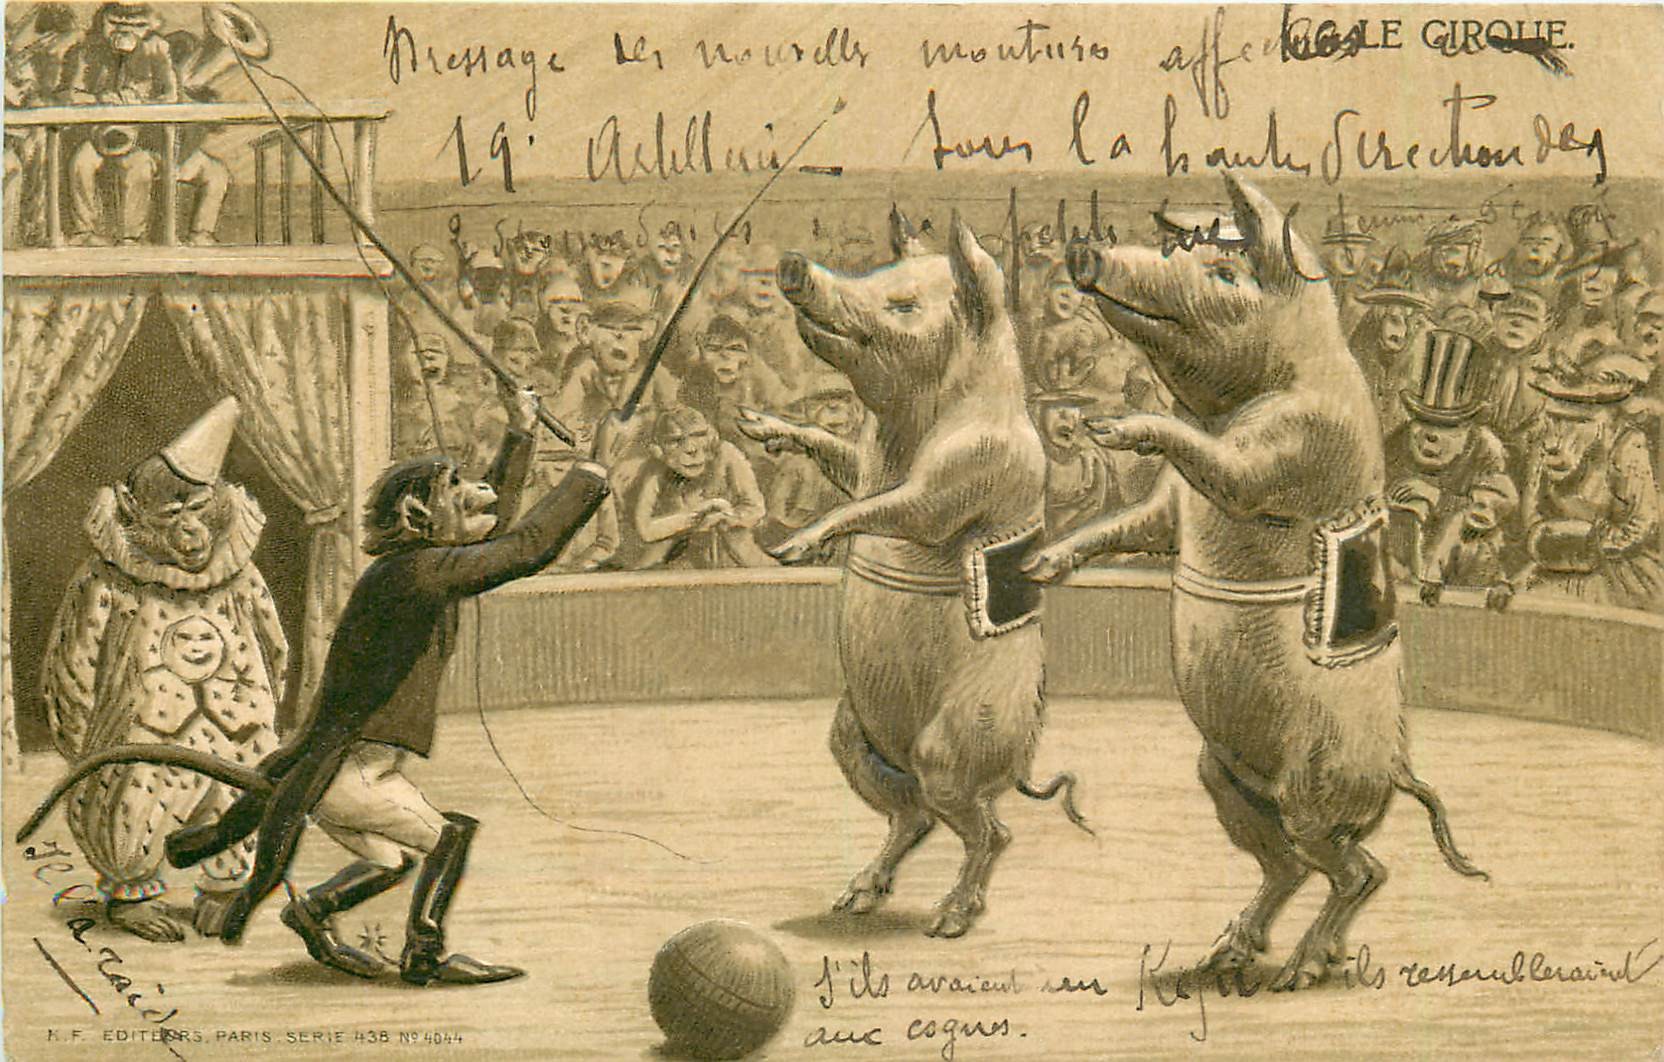 LE CIRQUE.
Dressage des nouvelles montures affectées au
19e Artillerie sous la haute direction des
petits
S'ils avaient un Képi ils ressembleraient
aux cognes.
K.F. EDITEURS, PARIS. SERIE 438 No 4044